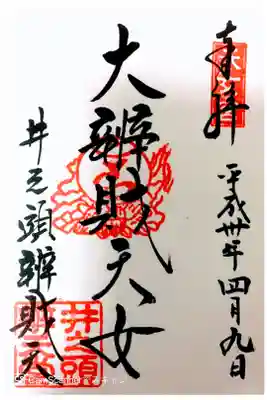 奉拝
平成卅年四月九日
大辨財天女
井之頭辨財天
井之頭